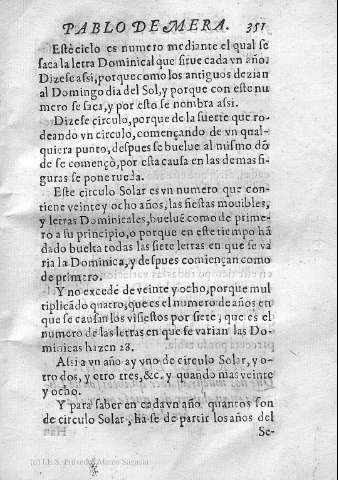 PABLO DE MERA. 351
Este ciclo es numero mediante el qual se
saca la letra Dominical que sirue cada vn año.
Dizese assi, porque como los antiguos dezian
al Domingo dia del Sol, y porque con este nu
mero se saca, y por esto se nombra assi.
Dizese circulo, porque de la suerte que ro-
deando vn circulo, començando de vn qual-
quiera punto, despues se buelue al mismo dō
de se començò, por esta causa en las demas fi-
guras se pone rueda.
Este circulo Solar es vn numero que con-
tiene veinte y ocho años, las fiestas mouibles,
y letras Dominicales, buelue como de prime-
ro a su principio, o porque en este tiempo hā
dado buelta todas las siete letras en que se va
ria la Dominica, y despues comiençan como
de primero.
Y no excede de veinte y ocho, porque mul
tiplicādo quatro, que es el numero de años en
que se causan los visiestos por siete, que es el
numero de las letras en que se varian las Do-
minicas hazen 28.
Assi a vn año ay vno de circulo Solar, y o-
tro dos, y otro tres, &c. y quando mas veinte
y ocho.
Y para saber en cada vn año quantos son
de circulo Solar, ha se de partir los años del
Se-
(c) I.E.S. Práxedes Mateo Sagasta